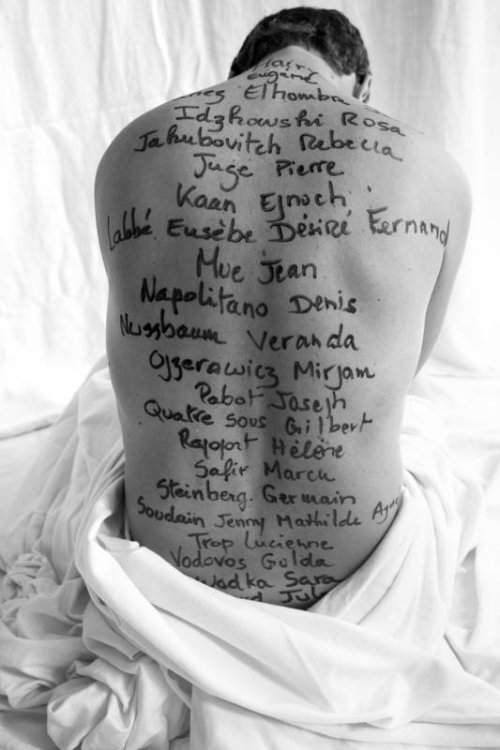 Eugène
Elhombra
Idzkowski Rosa
Jakubovitch Rebecca
Juge Pierre
Kaan Ejnoch
Labbé Eusèbe Désiré Fernand
Mue Jean
Napolitano Denis
Nussbaum Veranda
Ojzerawicz Mirjam
Pabot Joseph
Quatre Sous Gilbert
Rapoport Hélène
Safir Marcu
Steinberg Germain
Soudain Jenny Mathilde
Trop Lucienne
Vodovos Golda
Sara